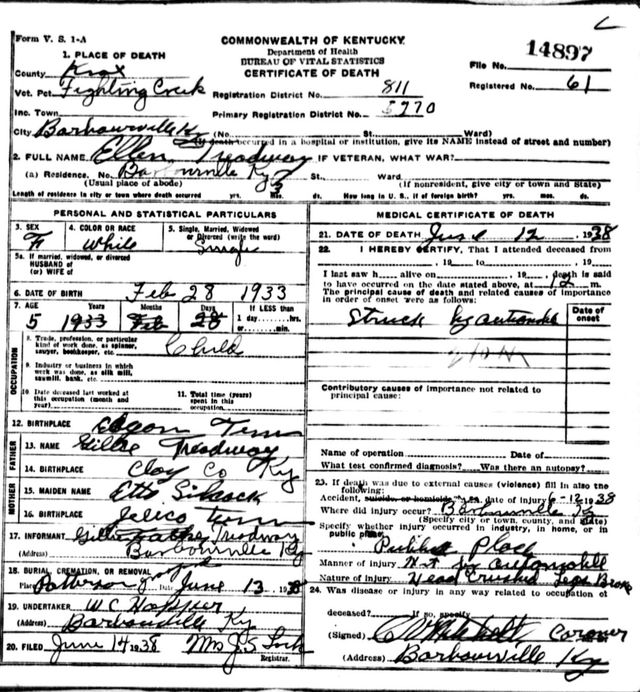 Form V. S. 1-A
COMMONWEALTH OF KENTUCKY
Department of Health
BUREAU OF VITAL STATISTICS
CERTIFICATE OF DEATH
File No. 14897
Registered No. 61
1. PLACE OF DEATH
County Knox
Vot. Pct. Fighting Creek
Registration District No. 811
Inc. Town
Primary Registration District No. 5270
City Barbourville Ky (No. St. Ward)
(If death occurred in a hospital or institution, give its NAME instead of street and number)
2. FULL NAME Ellen Treadway IF VETERAN, WHAT WAR?
(a) Residence. No. Barbourville Ky St. Ward.
(Usual place of abode) (If nonresident, give city or town and State)
Length of residence in city or town where death occurred yrs. mos. ds. How long in U. S., if of foreign birth? yrs. mos. ds.
PERSONAL AND STATISTICAL PARTICULARS
3. SEX F
4. COLOR OR RACE White
5. Single, Married, Widowed or Divorced (write the word) Single
5a. If married, widowed, or divorced
HUSBAND of
(or) WIFE of
6. DATE OF BIRTH Feb 28 1933
7. AGE Years Months Days If LESS than
5 1933 Feb 28 1 day hrs.
or min.
OCCUPATION
8. Trade, profession, or particular kind of work done, as spinner, sawyer, bookkeeper, etc. Child
9. Industry or business in which work was done, as silk mill, sawmill, bank, etc.
10. Date deceased last worked at this occupation (month and year)
11. Total time (years) spent in this occupation
12. BIRTHPLACE Tenn
FATHER
13. NAME Treadway
14. BIRTHPLACE Clay Co Ky
MOTHER
15. MAIDEN NAME Etta Silcock
16. BIRTHPLACE Jelico Tenn
17. INFORMANT Treadway
(Address) Barbourville Ky
18. BURIAL, CREMATION, OR REMOVAL
Place Patterson Date June 13 1938
19. UNDERTAKER W C Hopper
(Address) Barbourville Ky
20. FILED June 14 1938 Mrs J. S. Lock
Registrar.
MEDICAL CERTIFICATE OF DEATH
21. DATE OF DEATH June 12 1938
22. I HEREBY CERTIFY, That I attended deceased from
, 19 to , 19
I last saw h alive on , 19 death is said
to have occurred on the date stated above, at 12 m.
The principal cause of death and related causes of importance in order of onset were as follows:
Date of onset
Struck by automobile
Contributory causes of importance not related to principal cause:
Name of operation Date of
What test confirmed diagnosis? Was there an autopsy?
23. If death was due to external causes (violence) fill in also the following:
Accident, suicide, or homicide date of injury 6-12 1938
Where did injury occur? Barbourville Ky
(Specify city or town, county, and state)
Specify whether injury occurred in industry, in home, or in public place.
Public Place
Manner of injury Hit by automobile
Nature of injury Head Crushed Legs Broke
24. Was disease or injury in any way related to occupation of deceased? If so, specify
(Signed) Coroner
(Address) Barbourville Ky